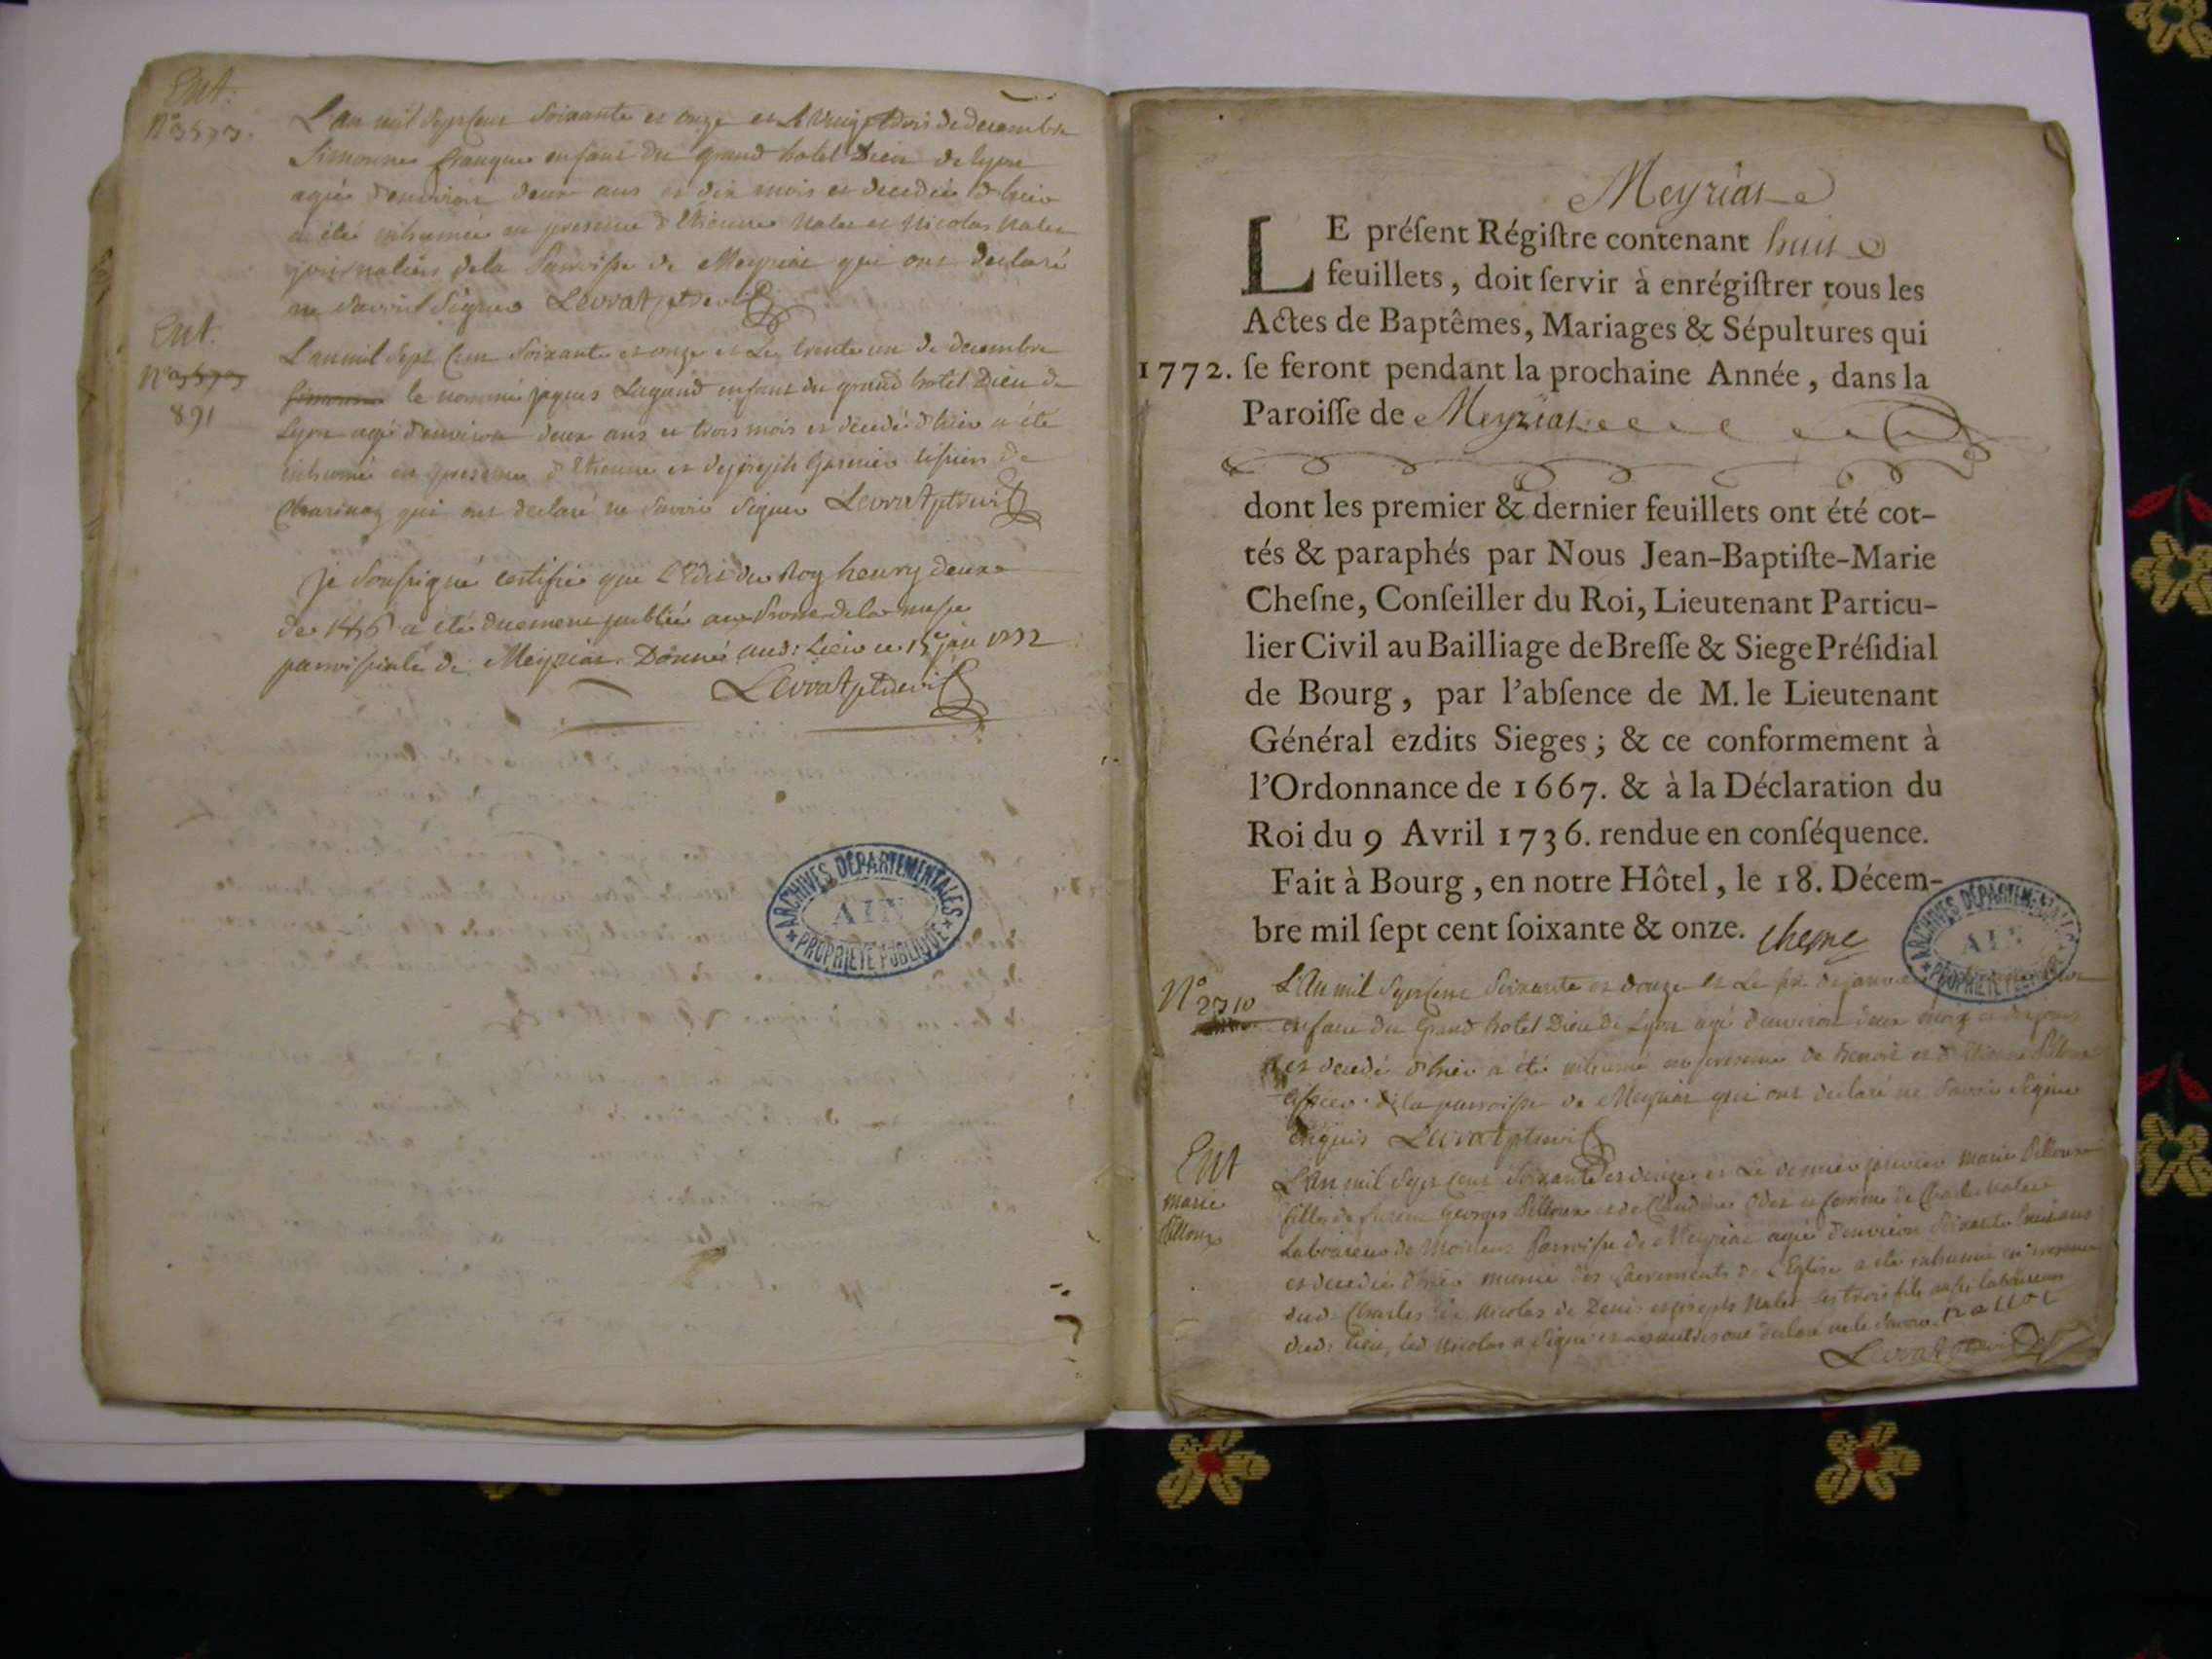 Ent.
N° 3573.
L'an mil Sept Cent Soixante et onze et Le vingt trois de decembre
Simonne franque enfant du grand hotel Dieu de lyon
agée d'environ deux ans et dix mois et decedée d'hier
a été inhumée en presence d'Etienne Nalet et Nicolas Nalet
journaliers de la Parroisse de Meyriat qui ont declaré
ne Savoir Signer Levrat ptre vic
Ent.
N° 3573
891
L'an mil Sept Cent Soixante et onze et Le trente un de decembre
Simonne le nommé jaques Lagand enfant du grand hotel Dieu de
Lyon agé d'environ deux ans et trois mois et decedé d'hier a été
inhumé en presence d'Etienne et de joseph Garnier tissiers de
qui ont declaré ne Savoir Signer Levrat ptre vic
Je Soussigné certifie que L'Edit du Roy henry deux
de a été duement publiée au Prone de la messe
parroissiale de Meyriat. Donné aud: Lieu ce 15e janv 1772
Levrat ptre vic
ARCHIVES DÉPARTEMENTALES
AIN
PROPRIÉTÉ PUBLIQUE
Meyriat
LE préſent Régiſtre contenant huit
feuillets, doit ſervir à enrégiſtrer tous les
Actes de Baptêmes, Mariages & Sépultures qui
1772. ſe feront pendant la prochaine Année, dans la
Paroiſſe de Meyriat
dont les premier & dernier feuillets ont été cot-
tés & paraphés par Nous Jean-Baptiſte-Marie
Cheſne, Conſeiller du Roi, Lieutenant Particu-
lier Civil au Bailliage de Breſſe & Siege Préſidial
de Bourg, par l'abſence de M. le Lieutenant
Général ezdits Sieges; & ce conformement à
l'Ordonnance de 1667. & à la Déclaration du
Roi du 9 Avril 1736. rendue en conſéquence.
Fait à Bourg, en notre Hôtel, le 18. Décem-
bre mil ſept cent ſoixante & onze. Chesne
ARCHIVES DÉPARTEMENTALES
AIN
PROPRIÉTÉ PUBLIQUE
N° 2710
L'An mil Sept Cent Soixante et douze et Le six de janvier
enfant du Grand hotel Dieu de Lyon agé d'environ deux mois et
et decedé d'hier a été inhumé en presence de Benoit et d'Etienne Pilloux
tissiers de la parroisse de Meyriat qui ont declaré ne Savoir Signer
enquis Levrat ptre vic
Ent
marie
Pilloux
L'An mil Sept Cent Soixante et douze et Le dernier janvier marie Pilloux
fille de furent Georges Pilloux et de Claudine et femme de Charles Nalet
Laboureur de Parroisse de Meyriat agée d'environ Soixante huit ans
et decedée d'hier munie des Sacrements de L'Eglise a été inhumée en presence
dud: Charles de Nicolas de Denis et joseph Nalet Ses trois fils aussi laboureurs
dud: lieu, led Nicolas a Signé et les autres ont declaré ne le Savoir. nallet
Levrat ptre vic